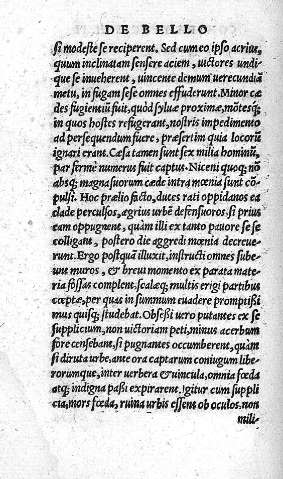 DE BELLO
si modeste se reciperent. Sed cum eo ipso acrius,
quum inclinatam sensere aciem, uictores undi-
que se inueherent, uincente demum uerecundiã
metu, in fugam sese omnes effuderunt. Minor cæ
des fugientiũ fuit, quòd syluæ proximæ, mõtesq;
in quos hostes refugerant, nostris impedimento
ad persequendum fuere, præsertim quia locorũ
ignari erant. Cæsa tamen sunt sex milia hominũ,
par fermè numerus fuit captus. Niceni quoq; nõ
absq; magna suorum cæde intra mœnia sunt cõ-
pulsi. Hoc prælio facto, duces rati oppidanos ea
clade perculsos, ægrius urbẽ defensuros. si prius
eam oppugnent, quàm illi ex tanto pauore se se
colligant, postero die aggredi mœnia decreue-
runt. Ergo postquã illuxit, instructi omnes sube-
unt muros, & breui momento ex parata mate-
ria fossas complent. scalæq; multis erigi partibus
cœptæ, per quas in summum euadere promptissi
mus quisq; studebat. Obsessi uero putantes ex se
supplicium, non uictoriam peti, minus acerbum
fore censebant, si pugnantes occumberent, quàm
si diruta urbe, ante ora captarum coniugum libe-
rorumque, inter uerbera & uincula, omnia fœda
atq; indigna passi expirarent. Igitur cum suppli
cia, mors fœda, ruina urbis essent ob oculos, non
mili-